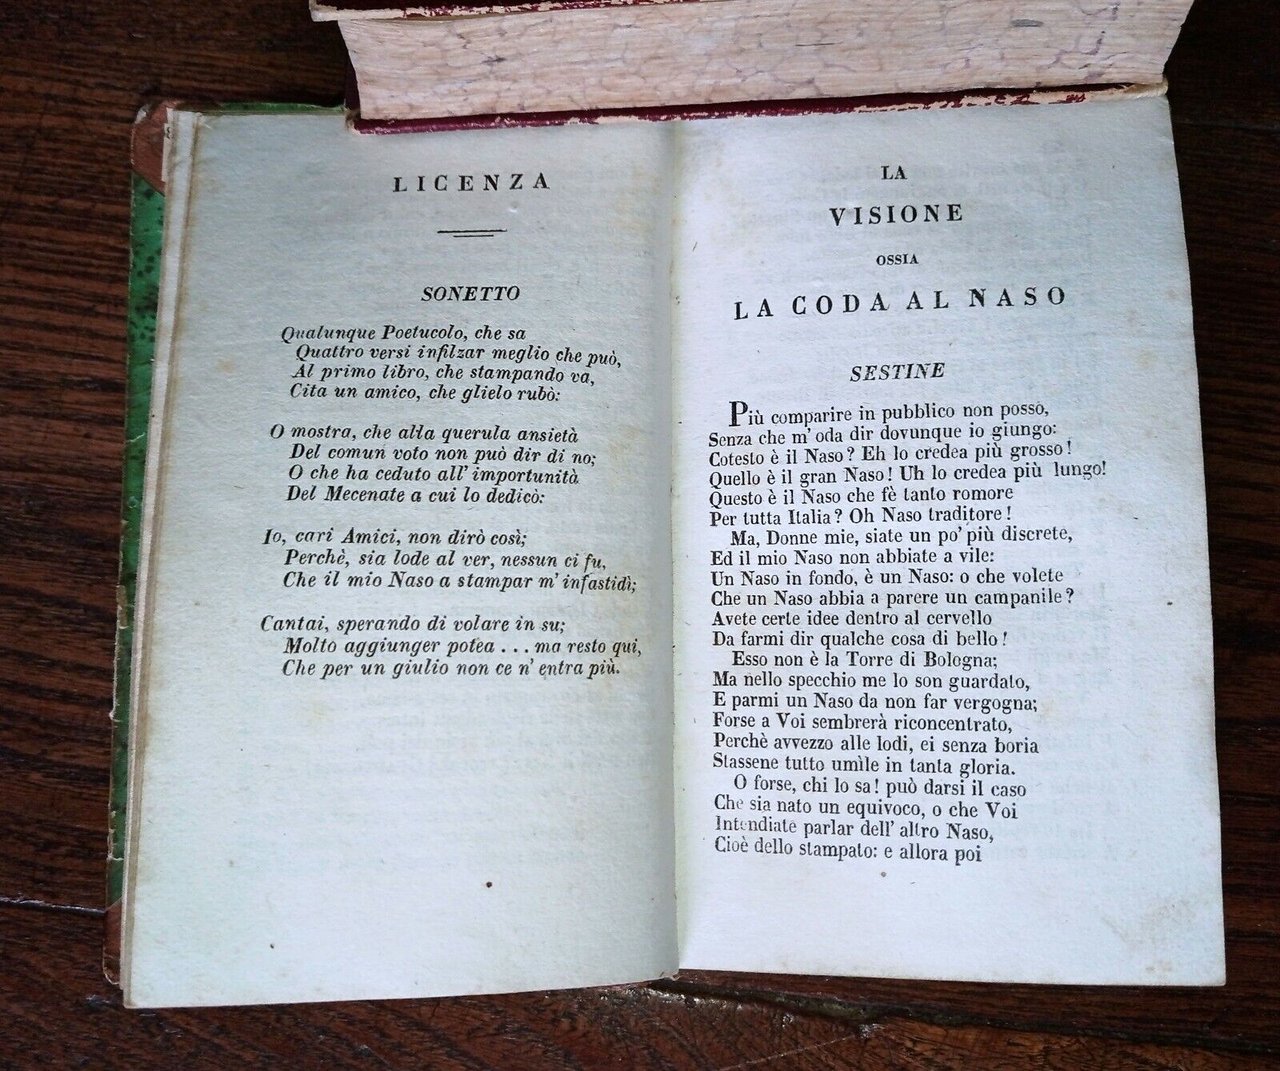 LICENZA
SONETTO
Qualunque Poetucolo, che sa
Quattro versi infilzar meglio che può,
Al primo libro, che stampando va,
Cita un amico, che glielo rubò:
O mostra, che alla querula ansietà
Del comun voto non può dir di no;
O che ha ceduto all' importunità
Del Mecenate a cui lo dedicò:
Io, cari Amici, non dirò così;
Perchè, sia lode al ver, nessun ci fu,
Che il mio Naso a stampar m' infastidì;
Cantai, sperando di volare in su;
Molto aggiunger potea . . . ma resto qui,
Che per un giulio non ce n' entra più.
LA
VISIONE
OSSIA
LA CODA AL NASO
SESTINE
Più comparire in pubblico non posso,
Senza che m' oda dir dovunque io giungo:
Cotesto è il Naso? Eh lo credea più grosso!
Quello è il gran Naso! Uh lo credea più lungo!
Questo è il Naso che fè tanto romore
Per tutta Italia? Oh Naso traditore!
Ma, Donne mie, siate un po' più discrete,
Ed il mio Naso non abbiate a vile:
Un Naso in fondo, è un Naso: o che volete
Che un Naso abbia a parere un campanile?
Avete certe idee dentro al cervello
Da farmi dir qualche cosa di bello!
Esso non è la Torre di Bologna;
Ma nello specchio me lo son guardato,
E parmi un Naso da non far vergogna;
Forse a Voi sembrerà riconcentrato,
Perchè avvezzo alle lodi, ei senza boria
Stassene tutto umìle in tanta gloria.
O forse, chi lo sa! può darsi il caso
Che sia nato un equivoco, o che Voi
Intendiate parlar dell' altro Naso,
Cioè dello stampato: e allora poi